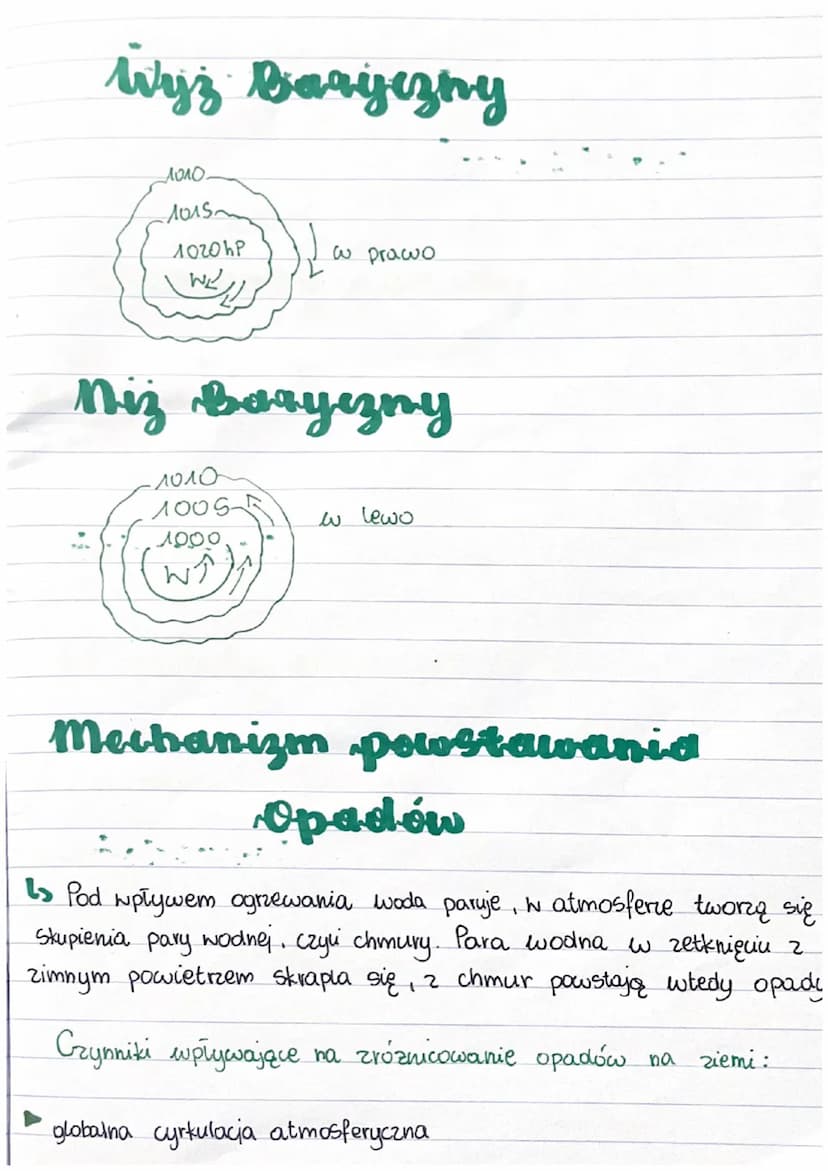 Wyż Baryczny
1010
1015
1020hP
w prawo
W
Niż Baryczny
1010
1005
w lewo
1000
W
Mechanizm powstawania
Opadów
Pod wpływem ogrzewania woda paruje, w atmosferze tworzą się
skupienia pary wodnej, czyli chmury. Para wodna w zetknięciu z
zimnym powietrzem skrapla się, z chmur powstają wtedy opady
Czynniki wpływające na zróżnicowanie opadów na ziemi:
globalna cyrkulacja atmosferyczna